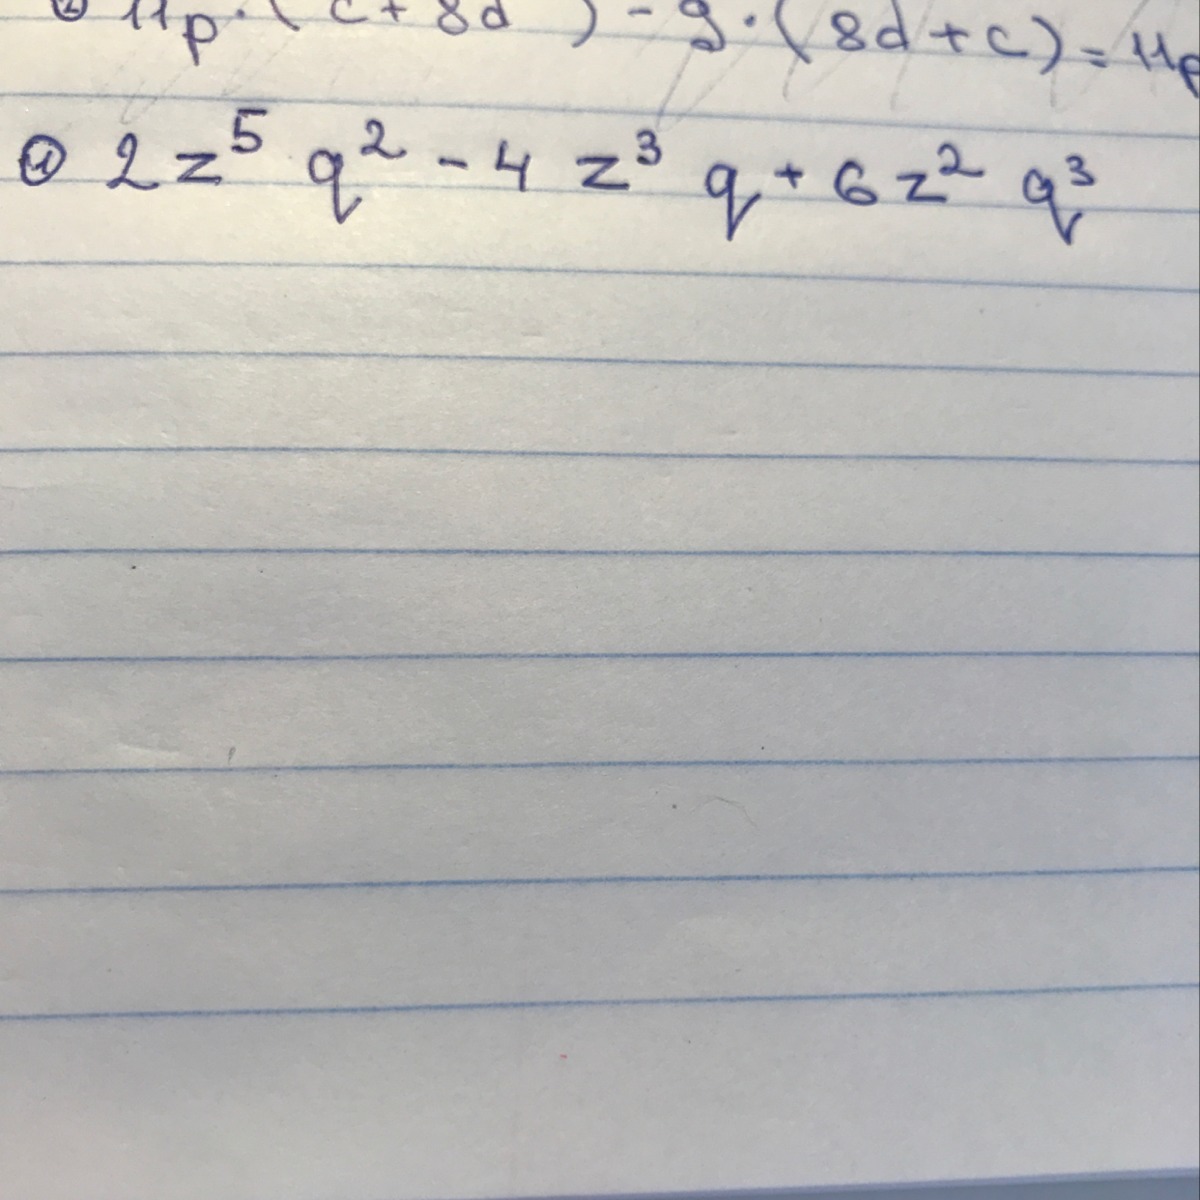 ② 11p·(c+8d) - 9·(8d+c) = 11p
① 2z⁵q² - 4z³q + 6z²q³